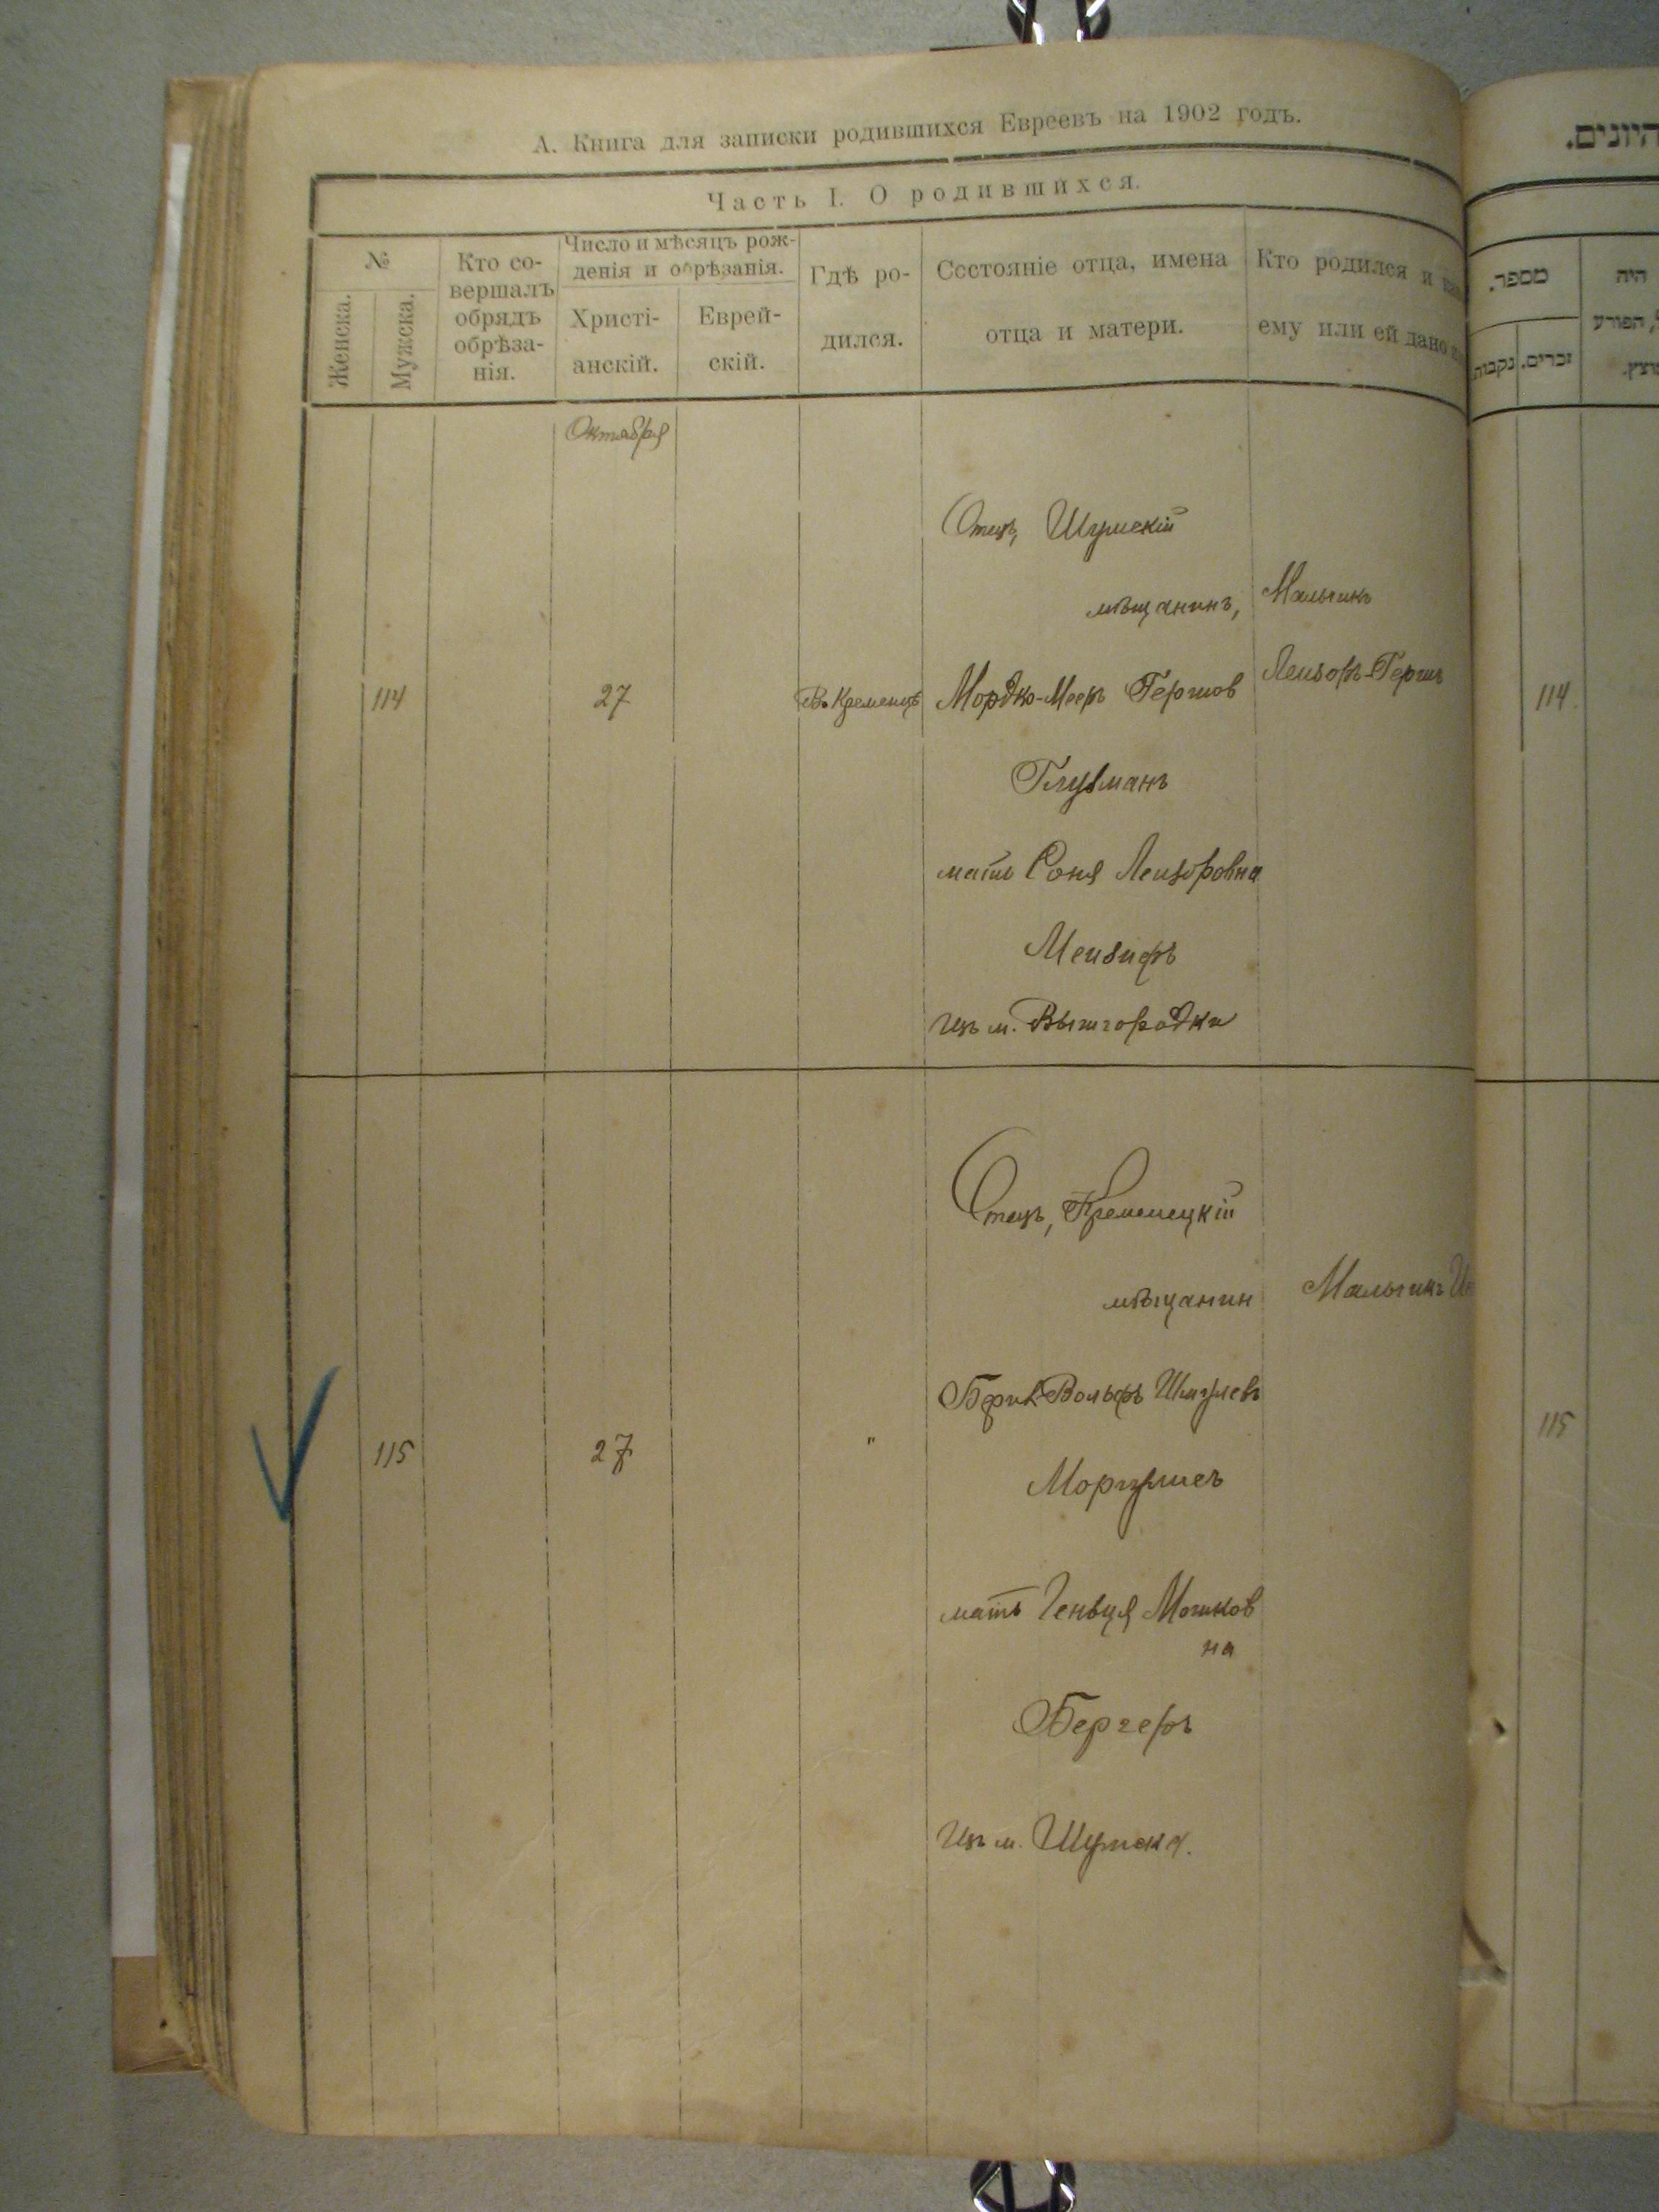 А. Книга для записки родившихся Евреевъ на 1902 годъ.
Часть I. О родившихся.
№
Женска.
Мужска.
Кто со-
вершалъ
обрядъ
обрѣза-
нія.
Число и мѣсяцъ рож-
денія и обрѣзанія.
Христі-
анскій.
Еврей-
скій.
Гдѣ ро-
дился.
Состояніе отца, имена
отца и матери.
Кто родился и
ему или ей дано
Октября
114
27
Въ Кременцѣ
Отецъ, Шумскій
мѣщанинъ,
Мордко-Мееръ Гершов
Глузманъ
мать Соня Лейзоровна
Мейзиръ
изъ м. Вышгородки
Мальчикъ
Лейзоръ-Гершъ
115
27
"
Отецъ, Кременецкій
мѣщанин
Вольфъ Шмулевъ
Моргулисъ
мать Генься Мошков
на
Бергеръ
изъ м. Шумска.
Мальчикъ
היונים.
מספר.
זכרים.
נקבות.
היה
הפורע
114.
115